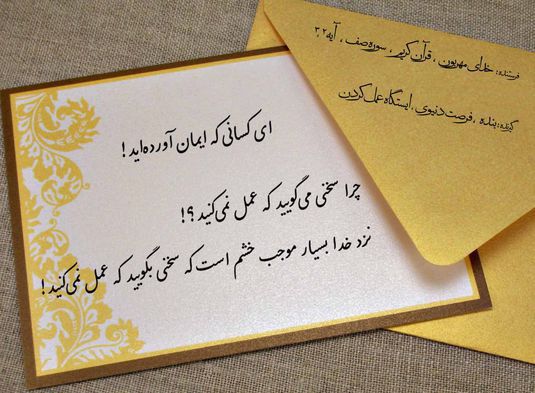 فرستنده: خدای مهربون، قرآن کریم، سوره صف، آیه ۲،۳
گیرنده: بنده، فرصت دنیوی، ایستگاه عمل کردن
ای کسانی که ایمان آورده‌اید!
چرا سخنی می‌گویید که عمل نمی‌کنید؟!
نزد خدا بسیار موجب خشم است که سخنی بگویید که عمل نمی‌کنید!